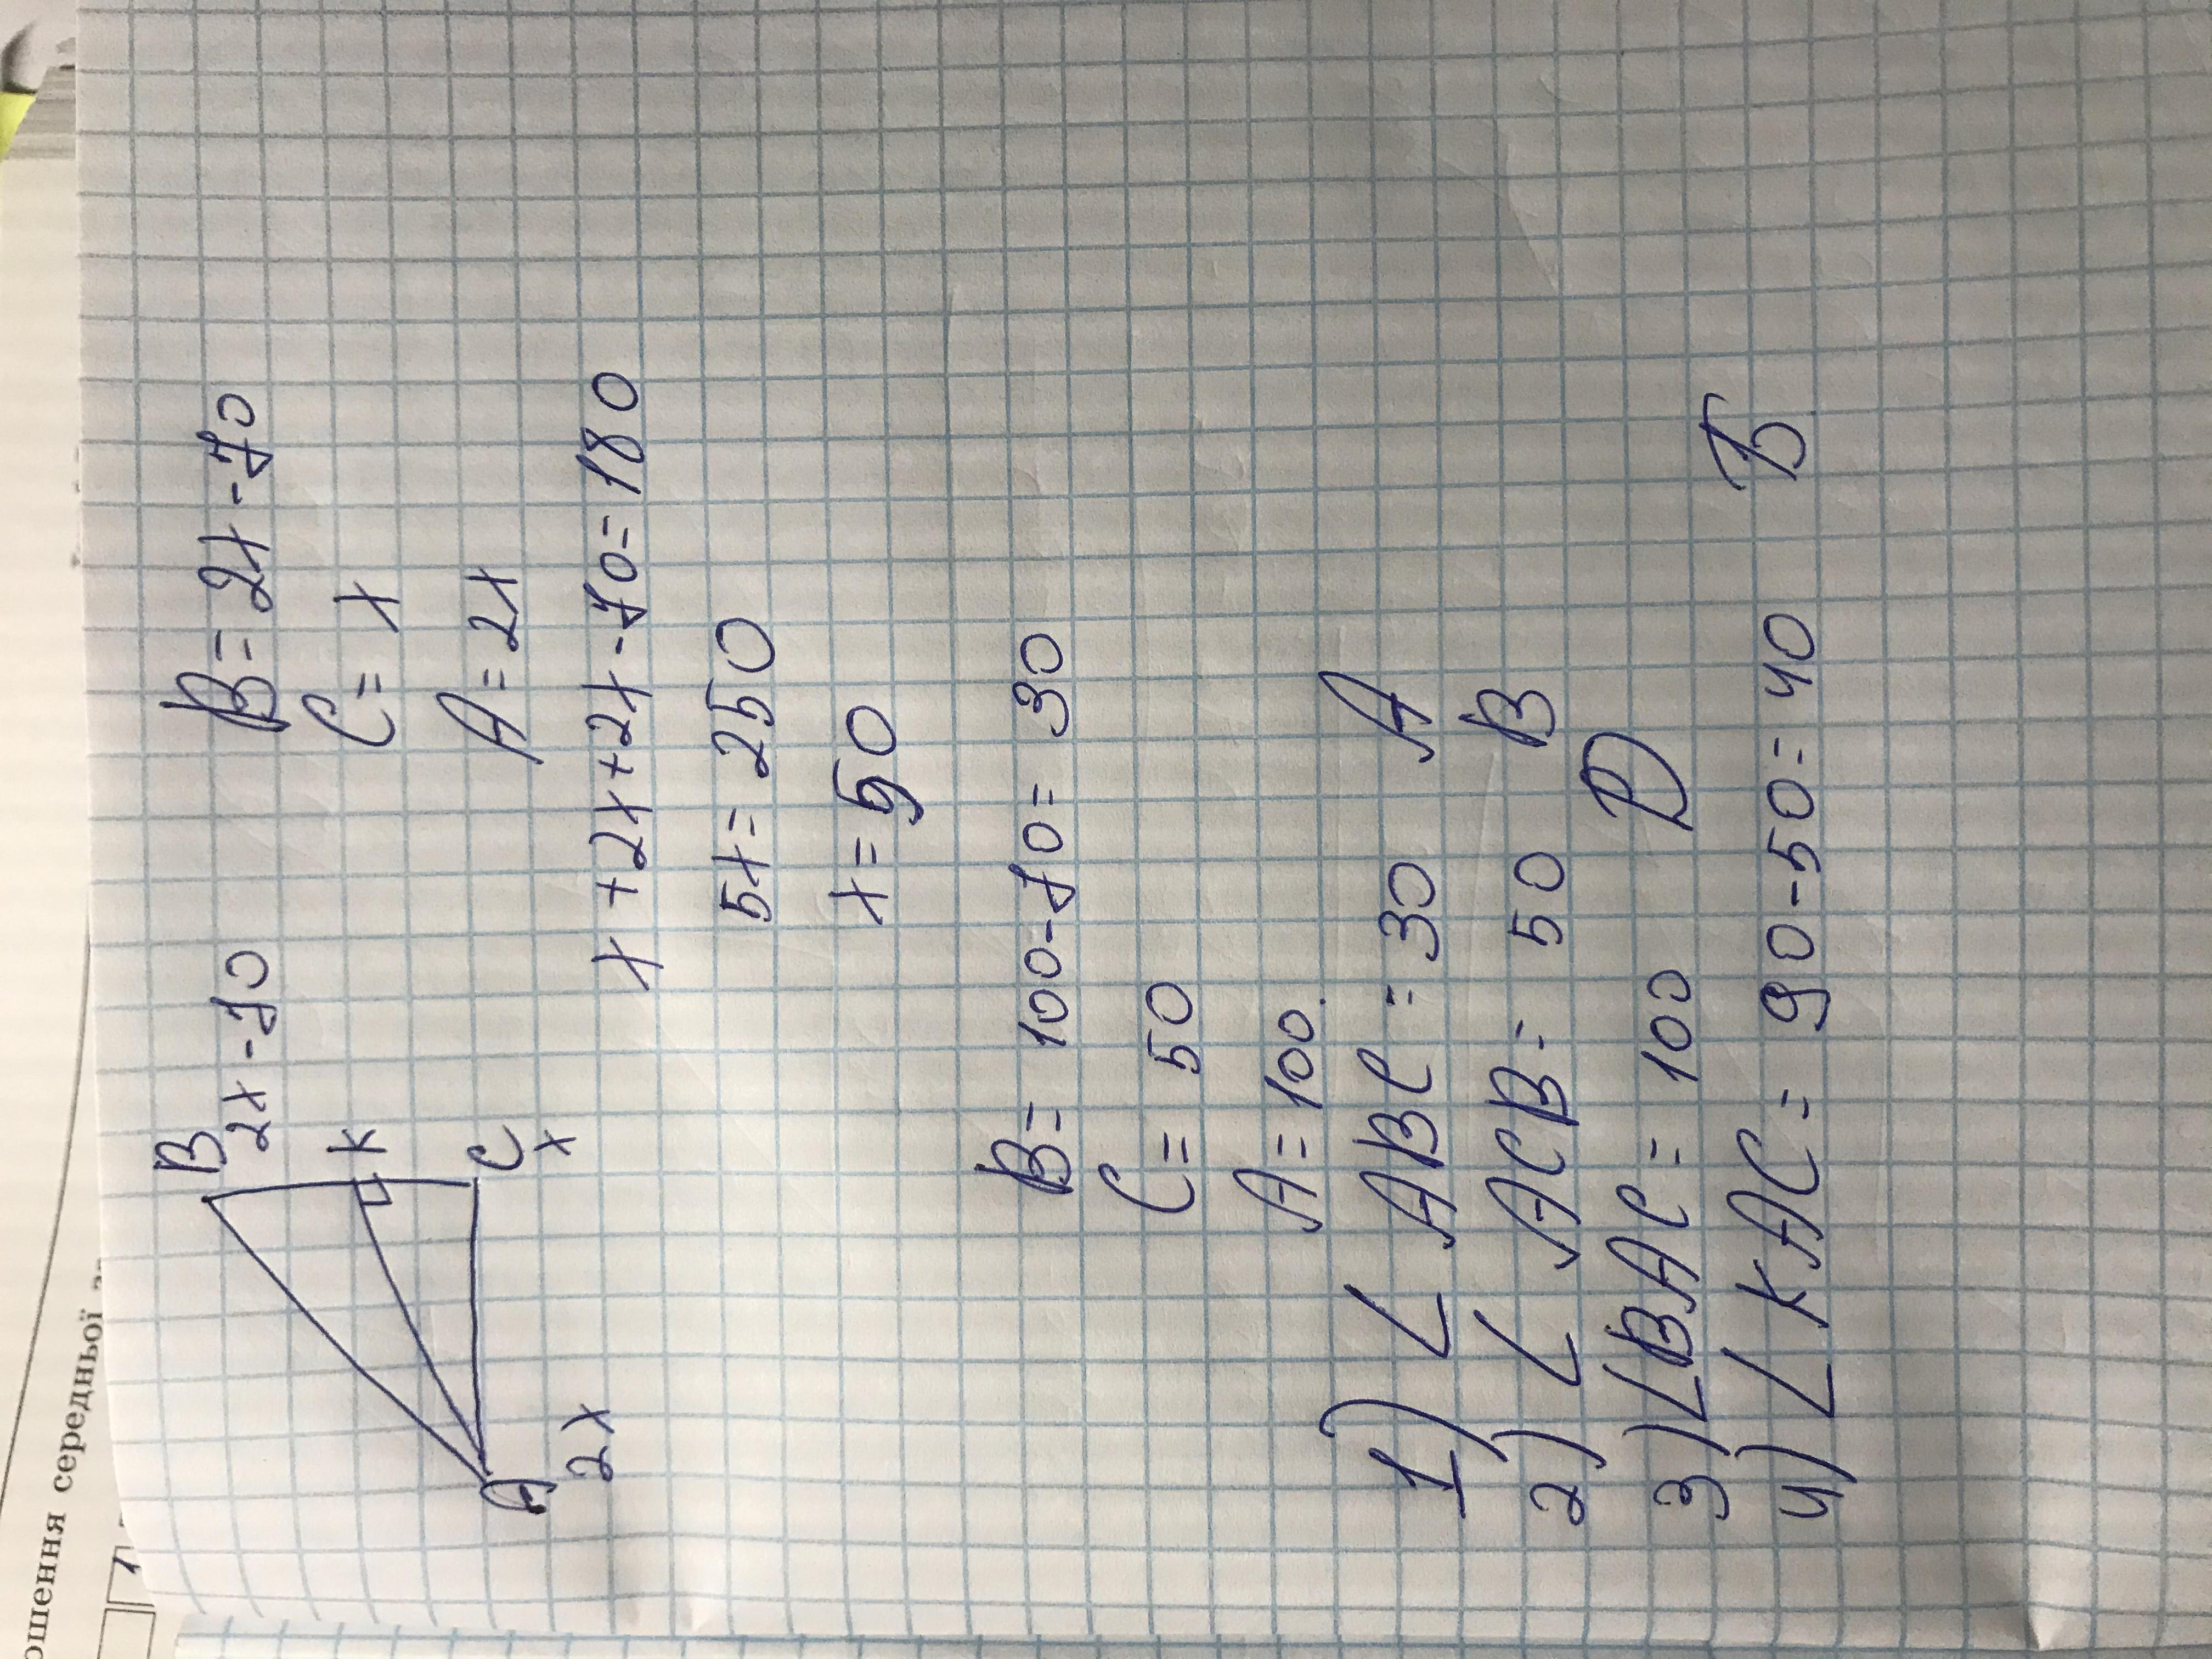 B
2x-70
K
C
x
A
2x
B=2x-70
C=x
A=2x
x+2x+2x-70=180
5x=250
x=50
B=100-70=30
C=50
A=100.
1) ∠ABC=30 А
2) ∠ACB=50 В
3) ∠BAC=100 Д
4) ∠KAC=90-50=40 Б
ошення середньої
1